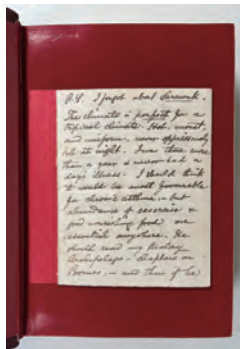 P.S. I forgot about Sarawak.
The climate is perfect for a
tropical climate. Hot, moist,
and uniform, never oppressively
hot at night. I was there more
than a year & never had a
day's illness. I should think
it would be most favourable
for chronic asthma, — but
abundance of exercise &
good nourishing food are
essential anywhere. He
should read my Malay
Archipelago — Chapters on
Borneo, — and then if he